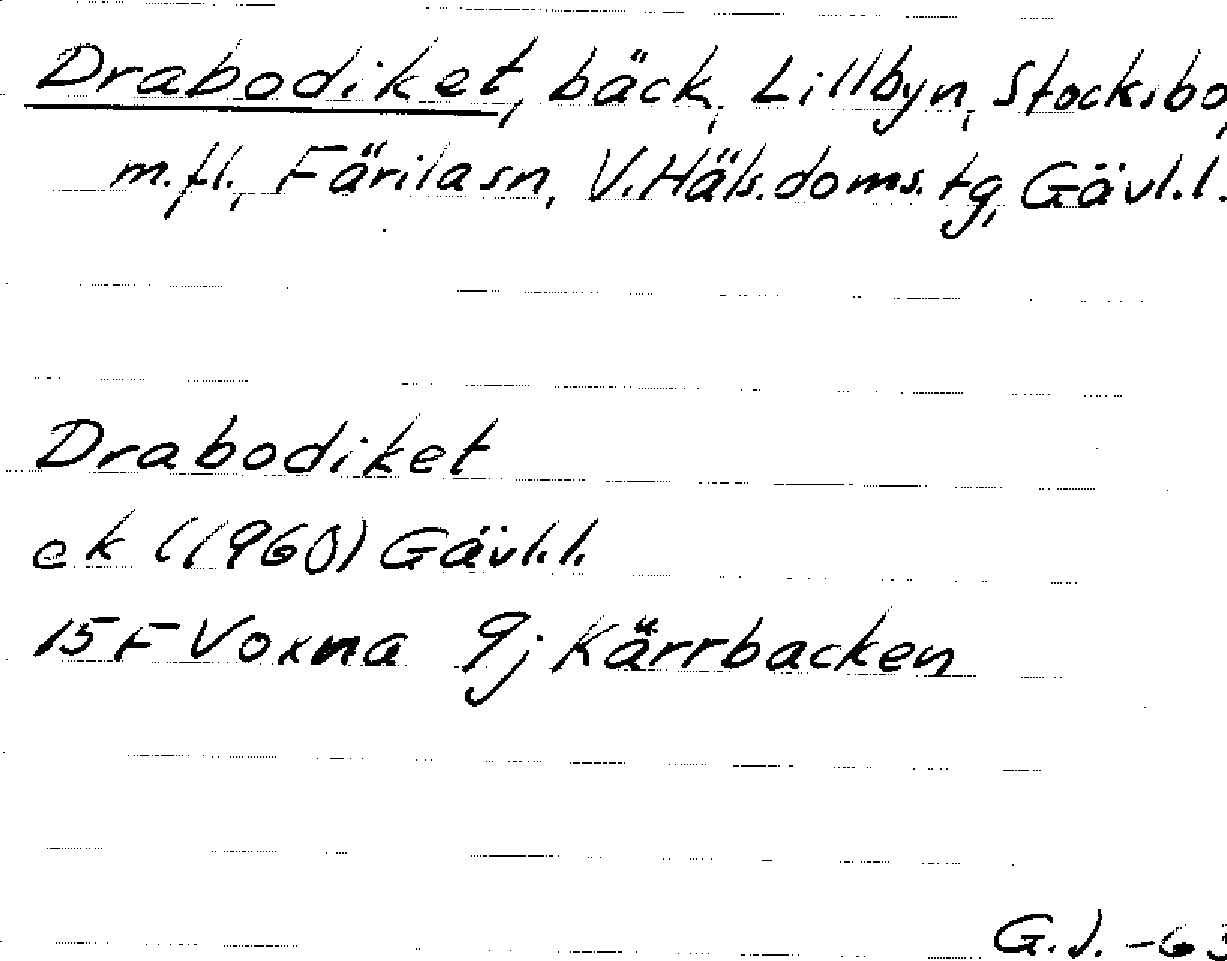 Drabodiket, bäck, Lillbyn, Stocksbo,
m.fl., Färila sn, V.Häls.doms.tg, Gävl.l.
Drabodiket
ek (1960) Gävl.l.
15F Voxna 9j Kärrbacken
G.J. -63